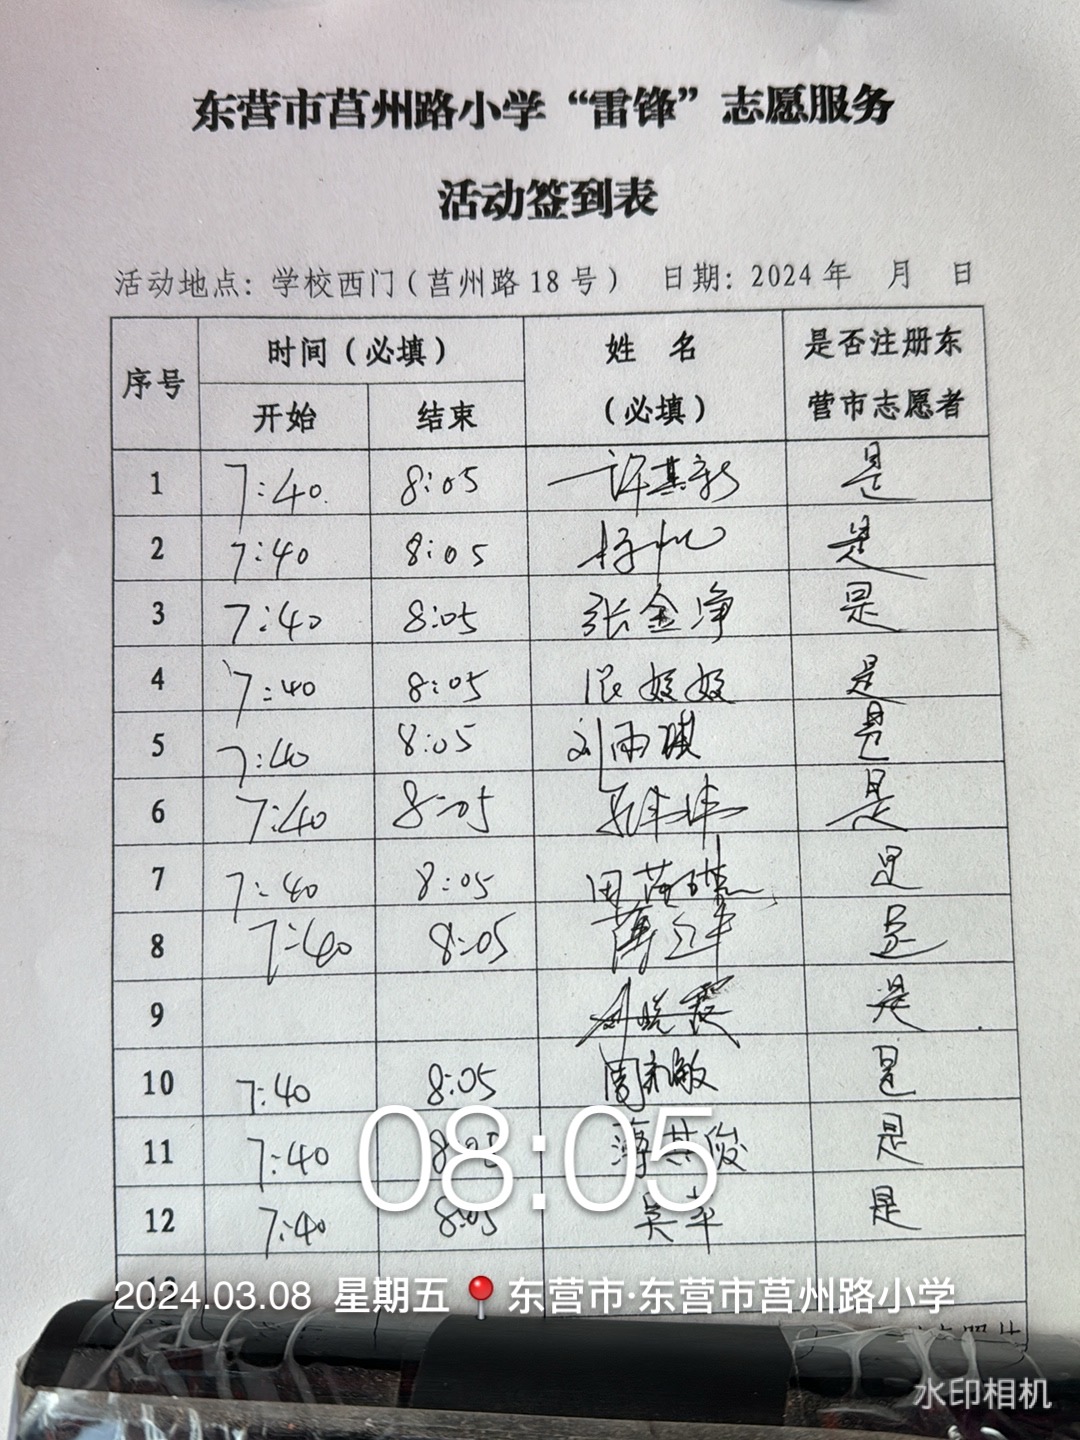 东营市莒州路小学“雷锋”志愿服务
活动签到表
活动地点：学校西门（莒州路18号） 日期：2024年 月 日
序号 时间（必填） 姓 名（必填） 是否注册东营市志愿者
开始 结束
1 7:40 8:05 许基新 是
2 7:40 8:05 是
3 7:40 8:05 张金净 是
4 7:40 8:05 是
5 7:40 8:05 刘雨琪 是
6 7:40 8:05 是
7 7:40 8:05 田 是
8 7:40 8:05 薄 是
9 刘晓霞 是
10 7:40 8:05 周 敏 是
11 7:40 8:05 薄其俊 是
12 7:40 8:05 吴平 是
13
08:05
2024.03.08 星期五 东营市·东营市莒州路小学
水印相机